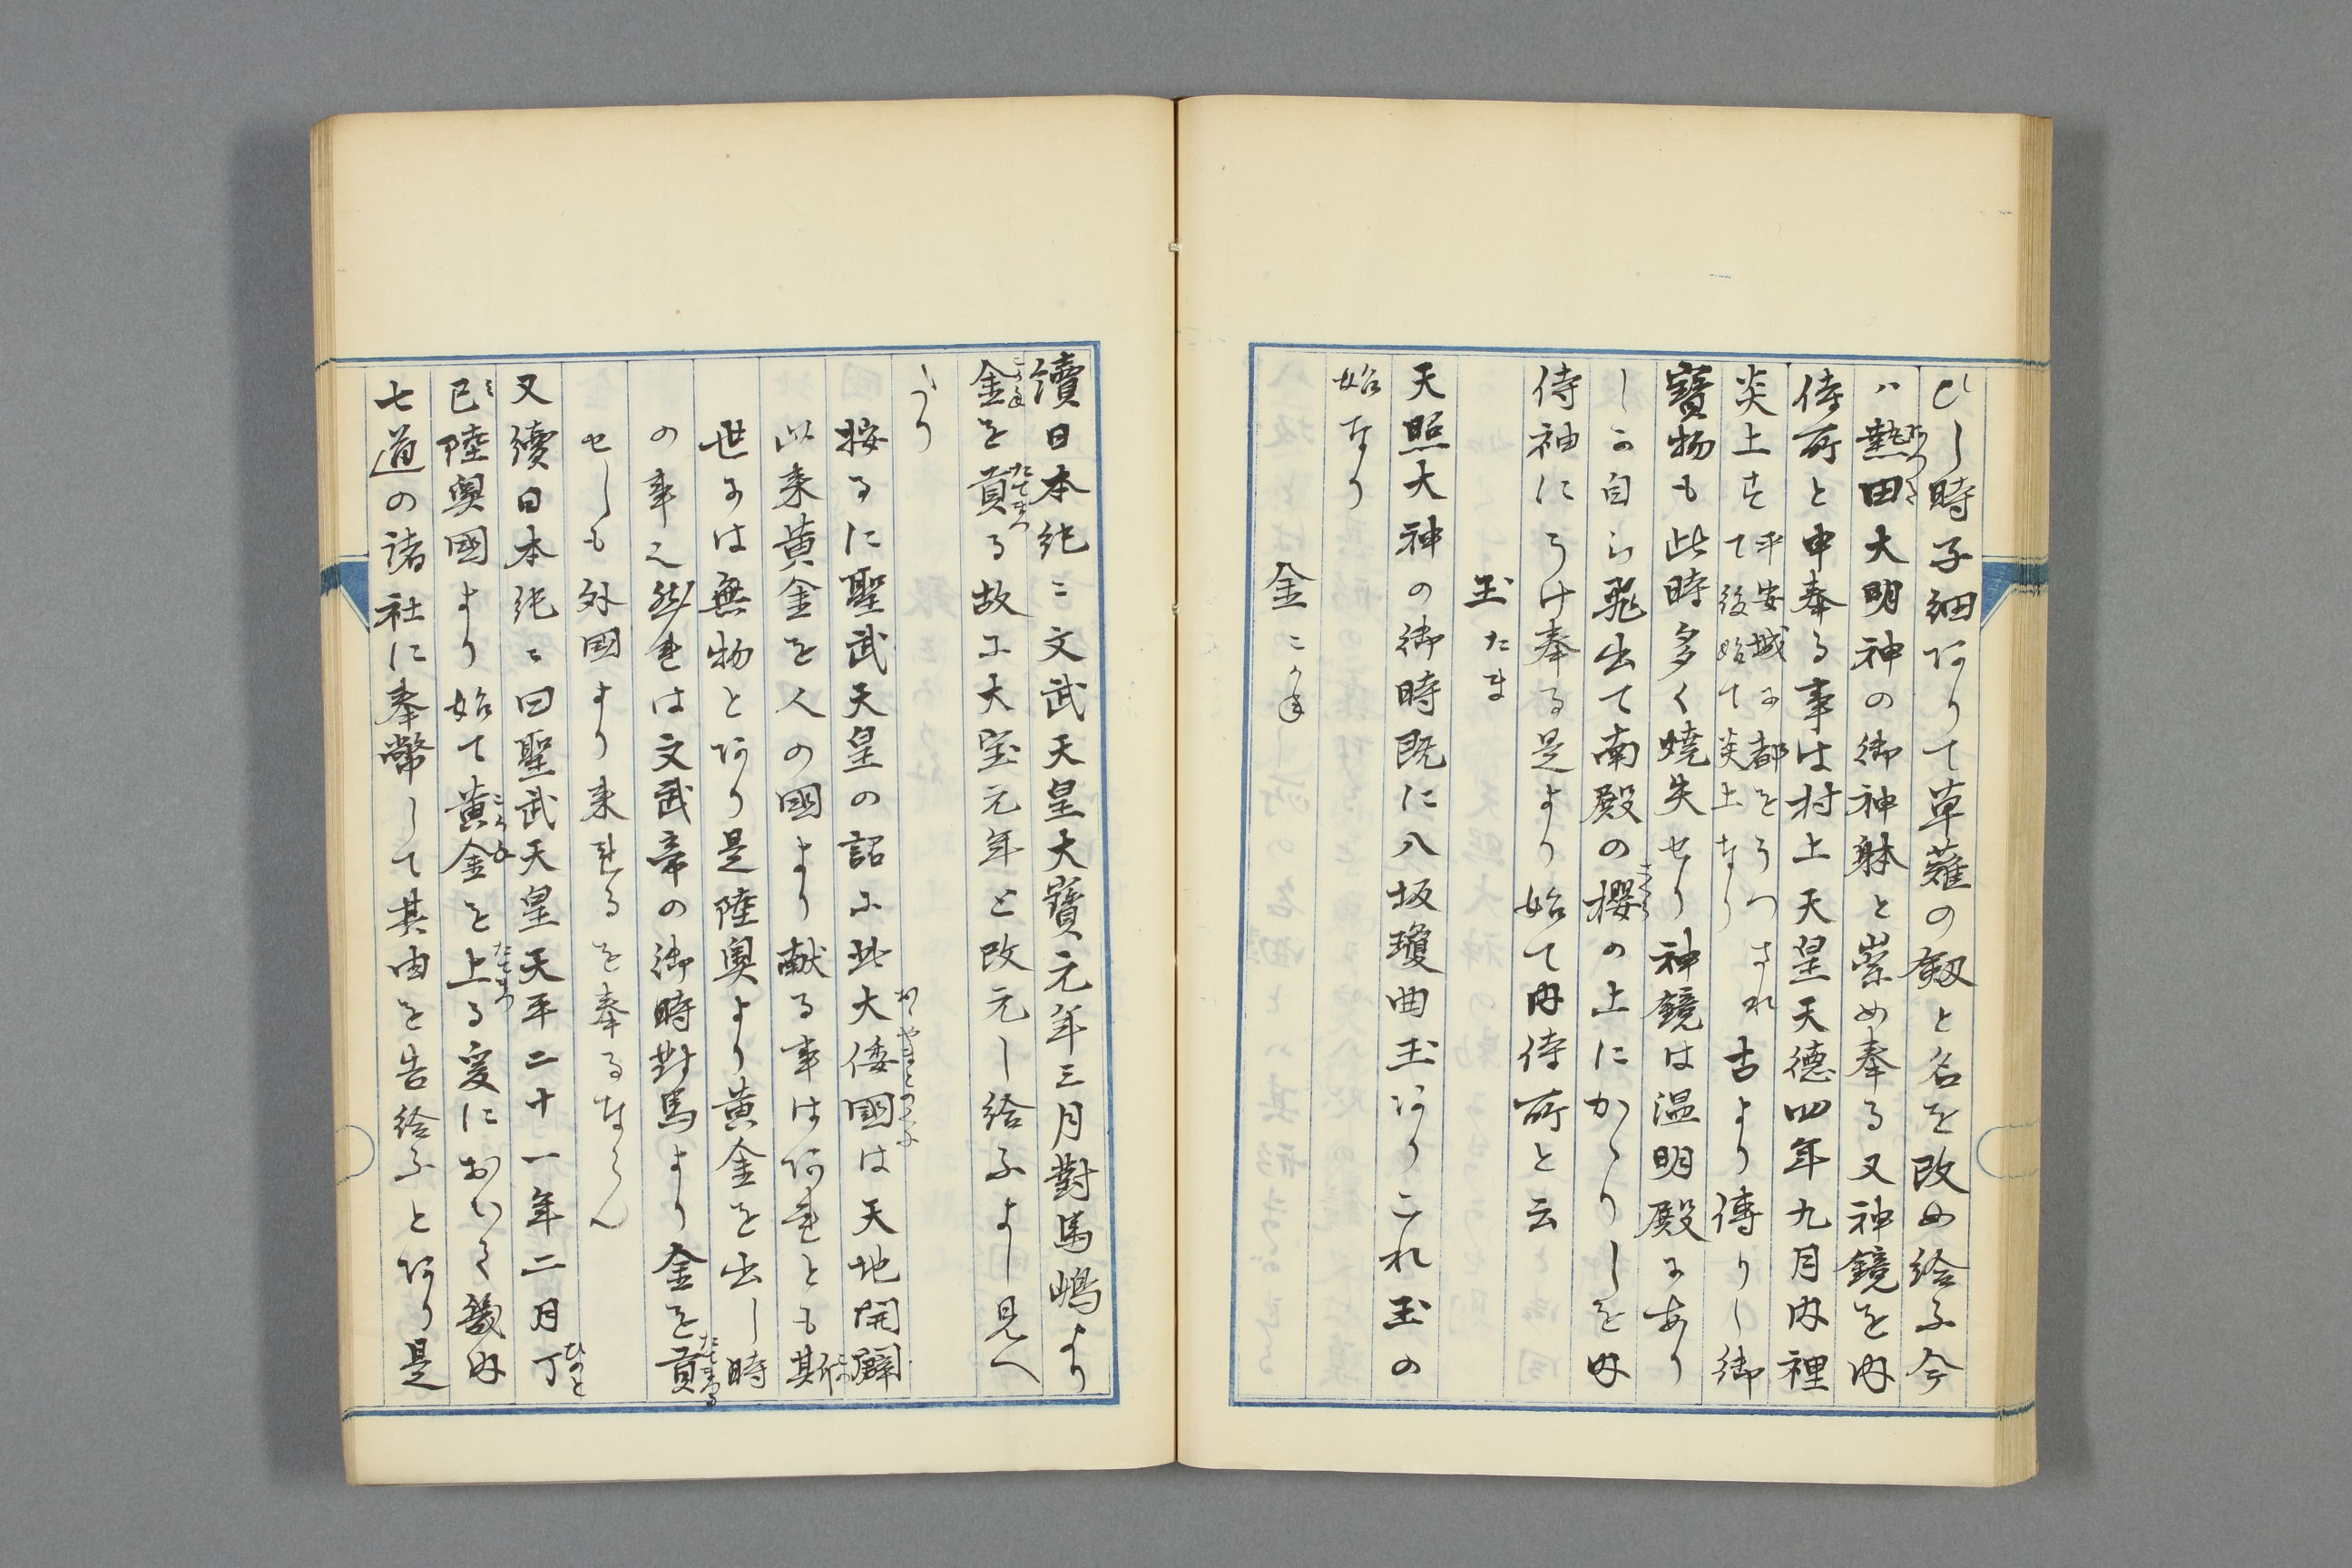 ひし時子細ありて草薙の剱と名を改め給ふ今
ハ熱田大明神の御神躰と崇め奉る又神鏡を内
侍所と申奉る事は村上天皇天德四年九月内裡
炎上すて
平安城に都をうつされ
て後始て炎上なり
古より傳りし御
寳物も此時多く燒失せり神鏡は温明殿にあり
しか自ら飛出て南殿の櫻の上にかゝりしを内
侍袖にうけ奉る是より始て内侍所と云
玉 たま
天照大神の御時既に八坂瓊曲玉ありこれ玉の
始なり
金 こかね
續日本紀ニ文武天皇大寳元年三月對馬嶋より
金を貢る故に大宝元年と改元し給ふよし見へ
たり
按るに聖武天皇の詔に此大倭國は天地開闢
以来黄金を人の國より献る事はあれとも斯
世には無物とあり是陸奥より黄金を出し時
の事也然れは文武帝の御時對馬より金を貢
せしも外國より来れるを奉るならん
又續日本紀ニ曰聖武天皇天平二十一年二月丁
巳陸奥國より始て黄金を上る爰において畿内
七道の諸社に奉幣して其由を告給ふとあり是